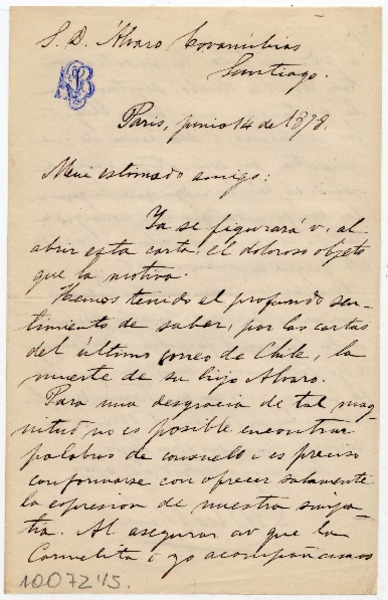 S. D. Álvaro Covarrubias
Santiago.
AB
Paris, junio 14 de 1878.
Mui estimado amigo:
Ya se figurará v. al
abrir esta carta, el doloroso objeto
que la motiva.
Hemos tenido el profundo sen-
timiento de saber, por las cartas
del último correo de Chile, la
muerte de su hijo Alvaro.
Para una desgracia de tal mag-
nitud no es posible encontrar
palabras de consuelo i es preciso
conformarse con ofrecer solamente
la espresion de nuestra simpa-
tia. Al asegurar a v que la
Carmelita i yo acompañamos
1007245.